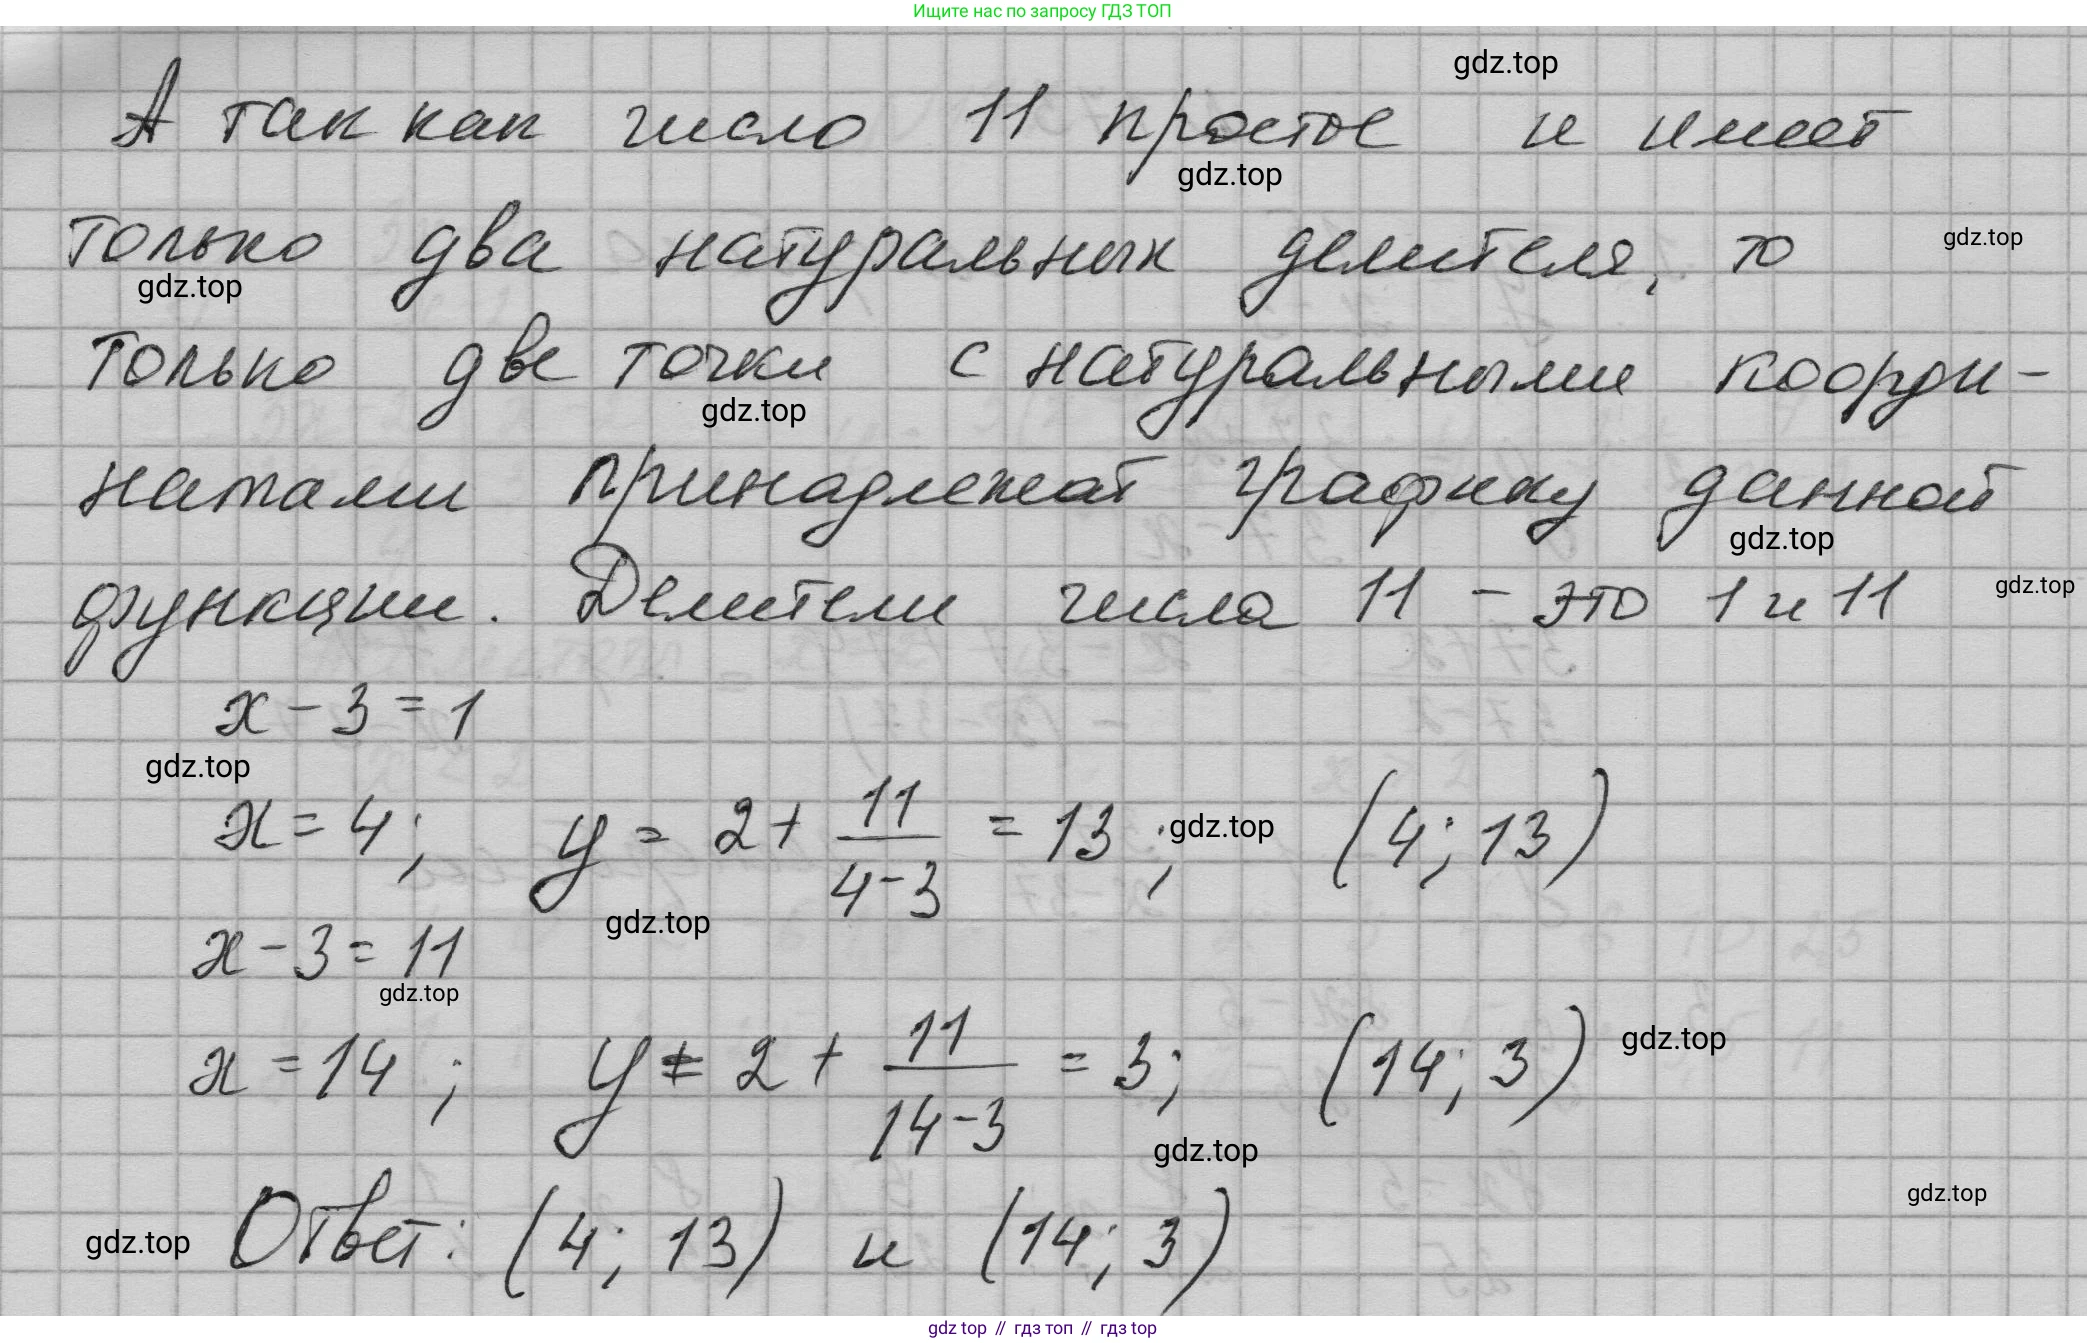 Ищите нас по запросу ГДЗ ТОП
gdz.top
А так как число 11 простое и имеет
gdz.top
только два натуральных делителя, то
gdz.top
gdz.top
только две точки с натуральными коорди-
gdz.top
натами принадлежат графику данной
gdz.top
функции. Делители числа 11 - это 1 и 11
gdz.top
x - 3 = 1
gdz.top
x = 4; y = 2 + 11/(4-3) = 13; (4; 13)
gdz.top
gdz.top
x - 3 = 11
gdz.top
x = 14; y = 2 + 11/(14-3) = 3; (14; 3)
gdz.top
gdz.top
gdz.top
Ответ: (4; 13) и (14; 3)
gdz.top
gdz top // гдз топ // гдз top